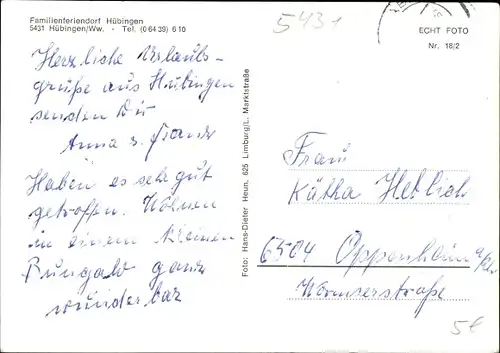 Familienferiendorf Hübingen
5431 Hübingen/Ww. · Tel. (0 64 39) 6 10
5431
ECHT FOTO
Nr. 18/2
Herzliche Urlaubs-
grüße aus Hübingen
senden Dir
Anna u. Franz
Haben es sehr gut
getroffen. Wohnen
in einem kleinen
Bungalo ganz
wunderbar
Foto: Hans-Dieter Heun, 625 Limburg/L. Marktstraße
Frau
Kätha
6504 Oppenheim a/Rh.
Wormserstraße
5€